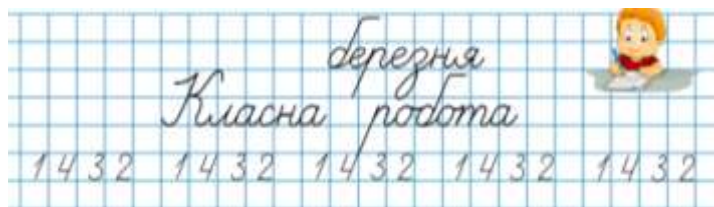 березня
Класна робота
1 4 3 2 1 4 3 2 1 4 3 2 1 4 3 2 1 4 3 2